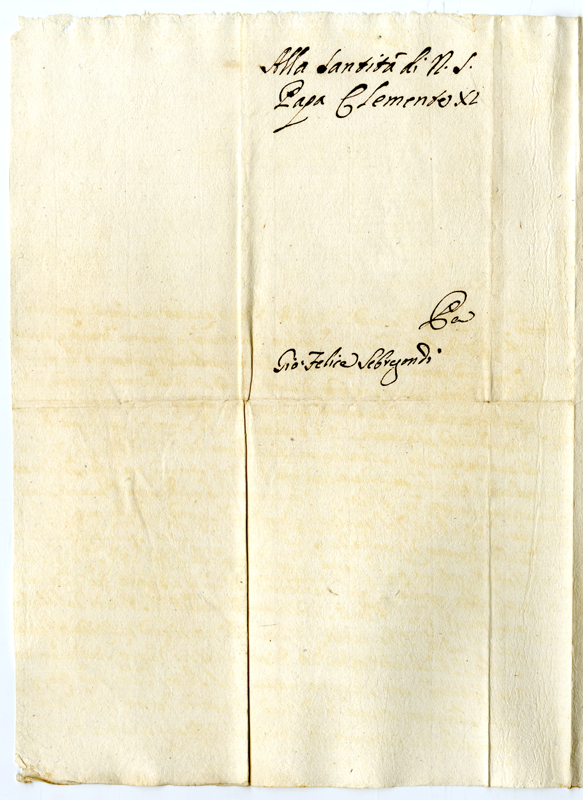 Alla Santità di N. S.
Papa Clemente XI
Pa
Gio: Felice Sebregondi